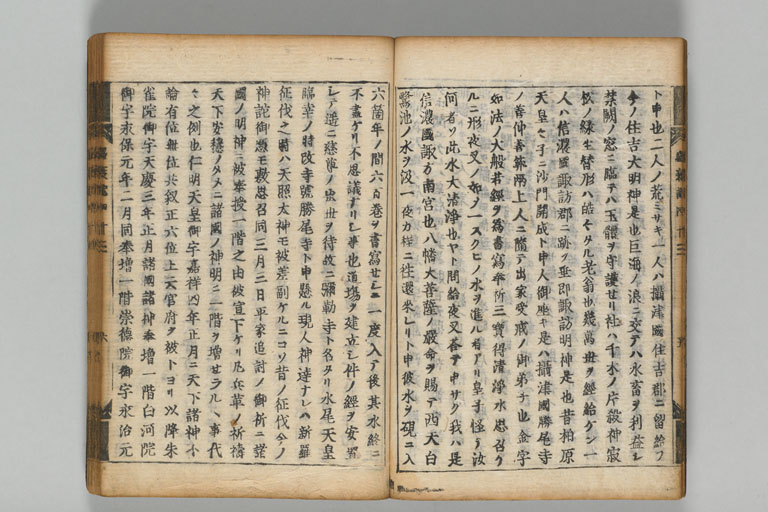 ト申也二人ノ荒ミサキ一人ハ攝津國住吉郡ニ留給フ
今ノ住吉大明神是也巨海ノ浪ニ交テハ水畜ヲ利益シ
禁闕ノ窓ニ臨テハ玉體ヲ守護セリ社ハ千木ノ片殺神寂
松ノ緑生替形ハ皓々タル老翁也幾萬世ヲ經給ケン一
人ハ信濃國諏訪郡ニ跡ヲ垂即諏訪明神是也昔柏原
天皇ノ子ニ沙門開成ト申人御坐キ是ハ攝津國勝尾寺
ノ善仲善算兩上人ニ隨テ出家受戒ノ御弟子也金字
如法ノ大般若經ヲ爲書寫祈三寶得清淨水思召ケ
ルニ形夜叉ノ如ノ一スクヒノ水ヲ進ル者アリ皇子怪ク汝
何者ソ此水大清淨也ヤト問給夜叉答テ申サク我ハ是
信濃國諏方南宮也八幡大菩薩ノ嚴命ヲ賜テ西天白
鷺池ノ水ヲ汲一夜力程ニ往還來レリト申彼水ヲ硯ニ入
六箇年ノ間六百卷ヲ書寫セシニ一度入テ後其水終ニ
不盡ケリ不思議ナリシ事也道場ヲ建立シ件ノ經ヲ安置
シテ遥ニ慈尊ノ出世ヲ待故ニ彌勒寺ト名タリ水尾天皇
臨幸ノ時改寺號勝尾寺ト申懸ル現人神達ナレハ新羅
征伐之時ハ天照太神モ被差副ケルニコソ昔ノ征伐今ノ
神詫御憑モ敷思召同三月三日平家追討ノ御祈ニ諸
國ノ明神ニ被奉授一階之由被宣下ケリ凡兵革ノ祈禱
天下安穩ノタメニ諸國ノ神明ニ一階ヲ增セラルヽ事代
々之例也仁明天皇御宇嘉祥四年正月ニ天下諸神不
論有位無位共叙正六位上太官府ヲ被下ヨリ以降朱
雀院御宇天慶三年正月諸國諸神奉增一階白河院
御宇永保元年二月同奉增一階崇德院御宇永治元